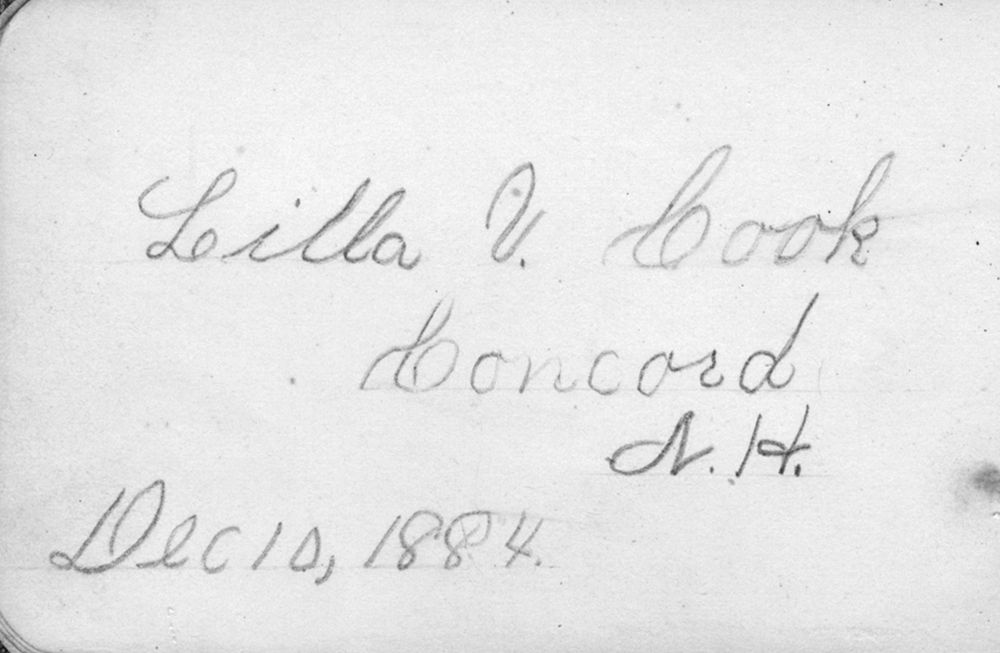 Lilla V. Cook
Concord
N. H.
Dec 10, 1884.